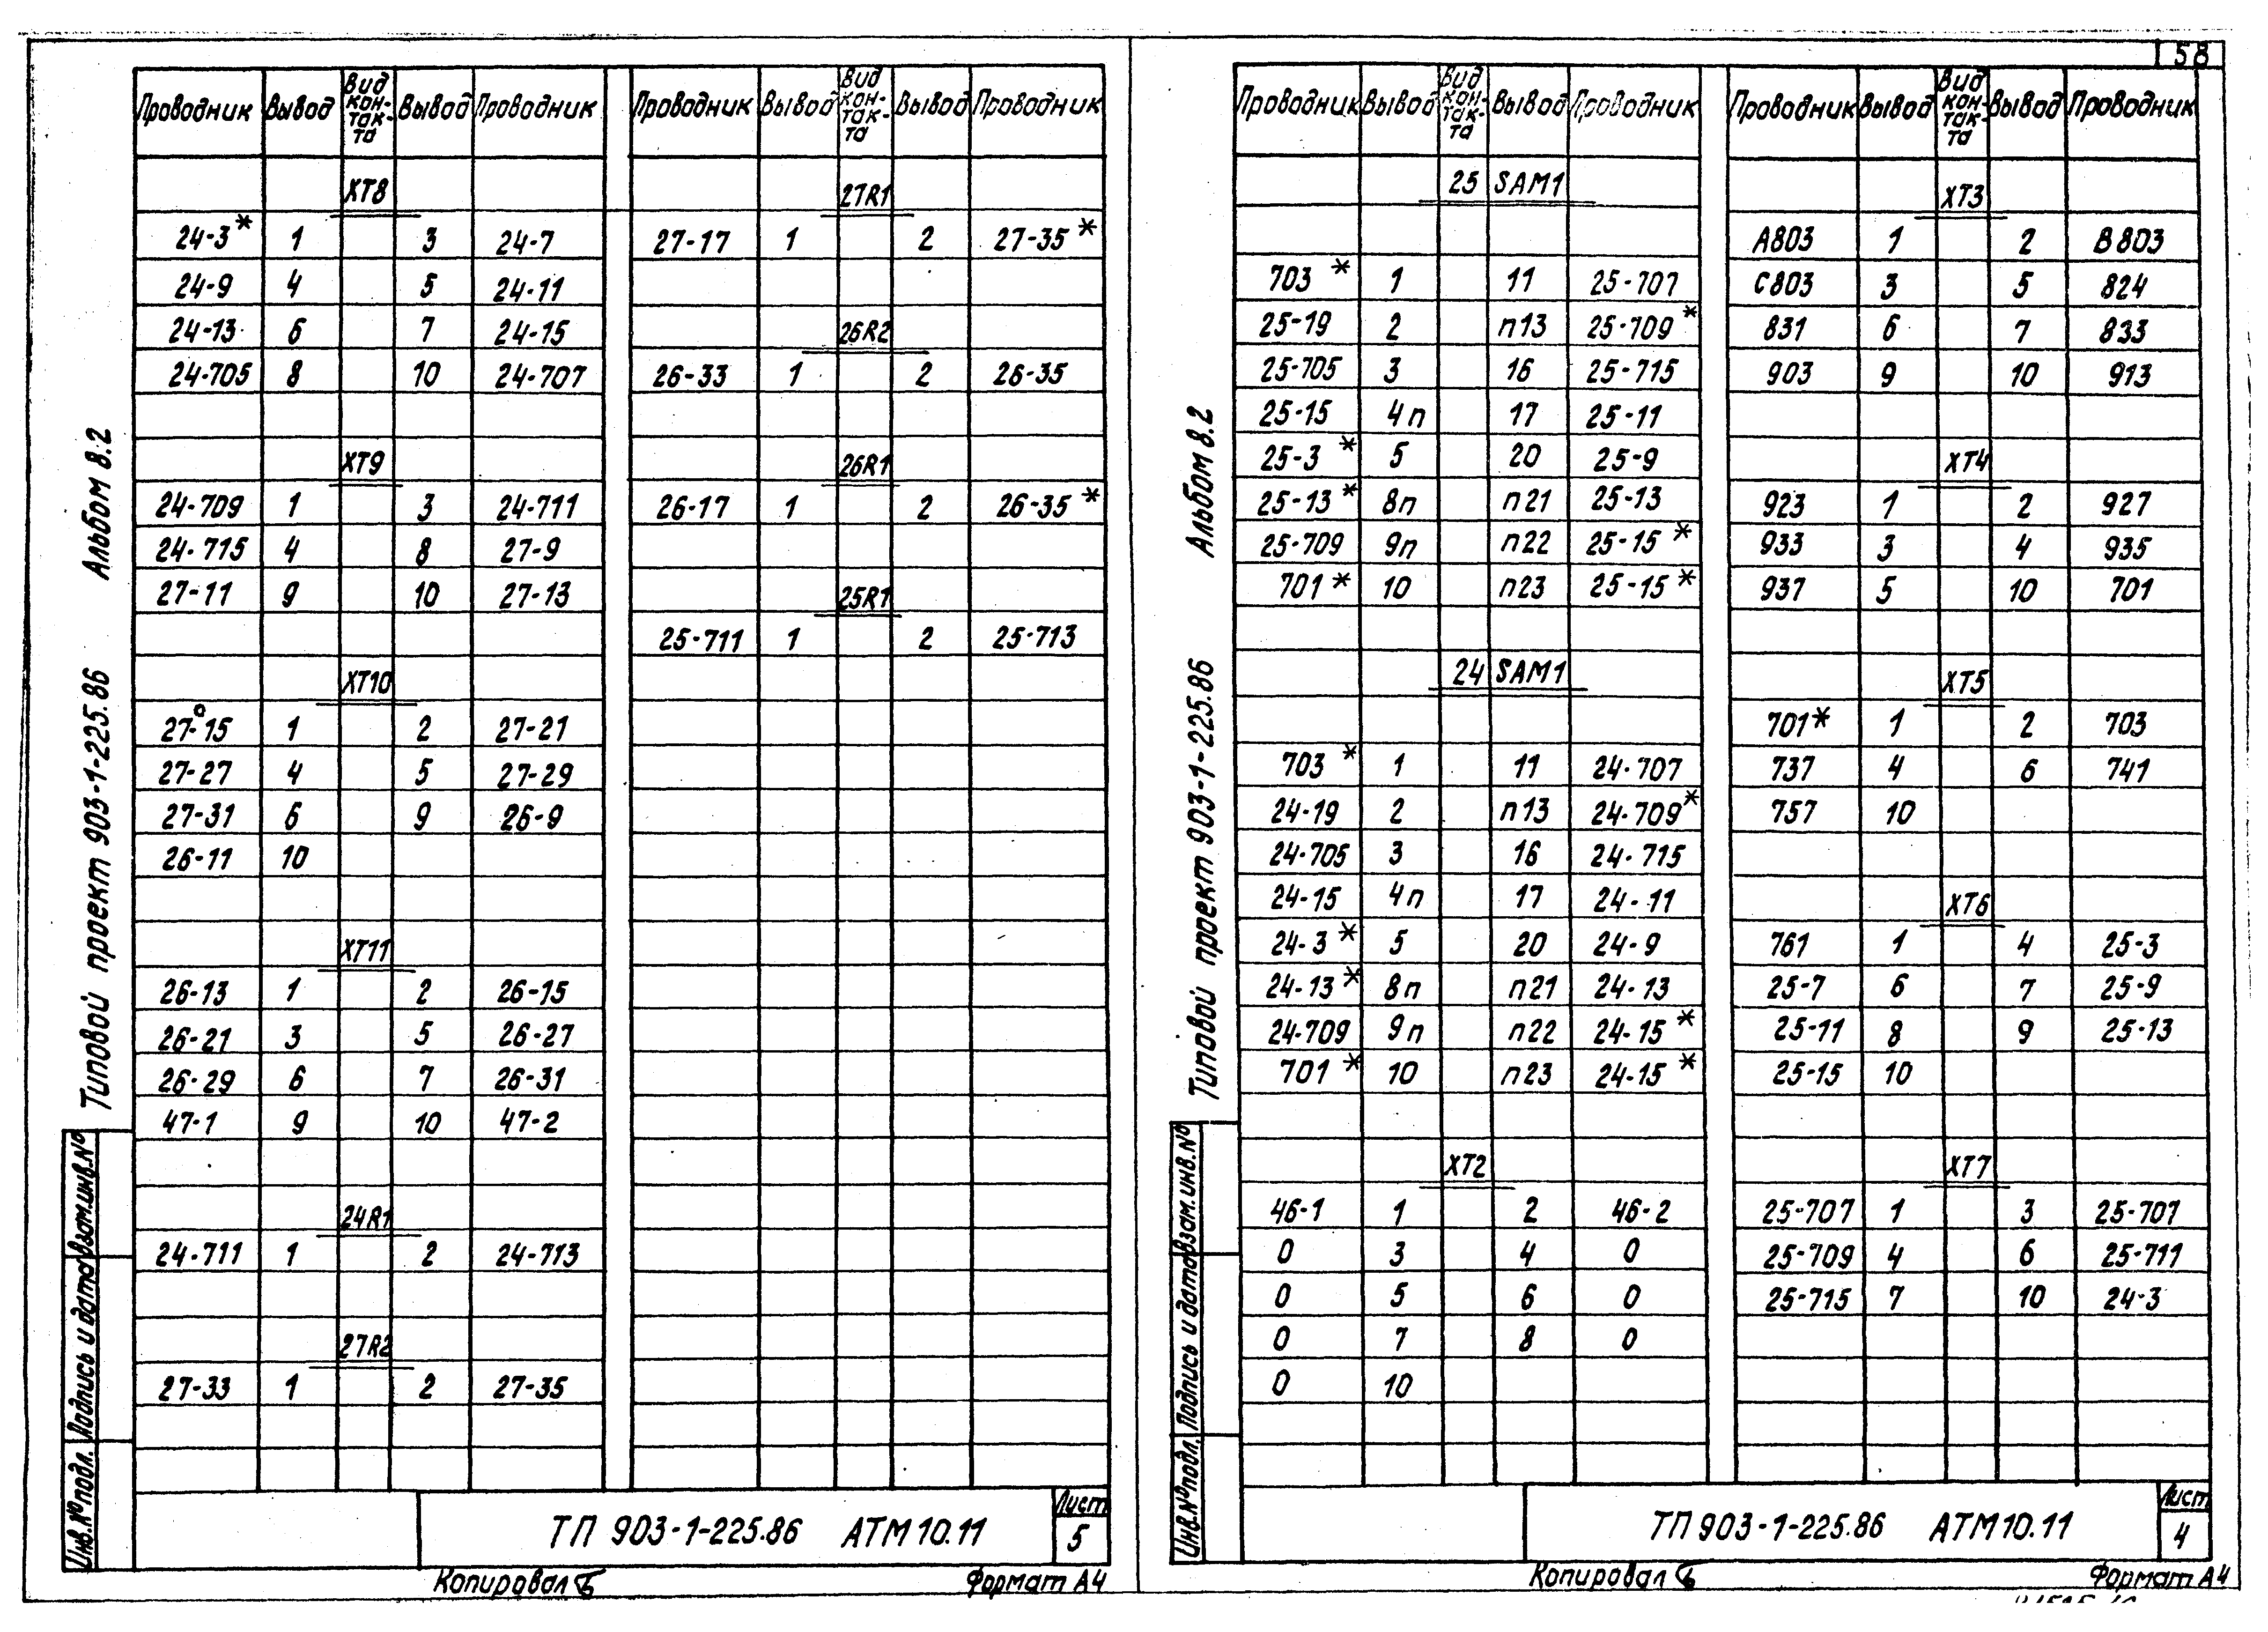 58
Альбом 8.2
Типовой проект 903-1-225.86
Взам.инв.№
Подпись и дата
Инв.№подл.
Проводник Вывод Вид контакта Вывод Проводник
XT8
24-3* 1 3 24-7
24-9 4 5 24-11
24-13 6 7 24-15
24-705 8 10 24-707
XT9
24-709 1 3 24-711
24-715 4 8 27-9
27-11 9 10 27-13
XT10
27-15 1 2 27-21
27-27 4 5 27-29
27-31 6 9 26-9
26-11 10
XT11
26-13 1 2 26-15
26-21 3 5 26-27
26-29 6 7 26-31
47-1 9 10 47-2
24R1
24-711 1 2 24-713
27R2
27-33 1 2 27-35
Проводник Вывод Вид кон-так-та Вывод Проводник
27R1
27-17 1 2 27-35*
26R2
26-33 1 2 26-35
26R1
26-17 1 2 26-35*
25R1
25-711 1 2 25-713
ТП 903-1-225.86 АТМ10.11
Лист
5
Копировал
Формат А4
Альбом 8.2
Типовой проект 903-1-225.86
Взам.инв.№
Подпись и дата
Инв.№подл.
Проводник Вывод Вид кон-так-та Вывод Проводник
25 SAM1
703* 1 11 25-707
25-19 2 п13 25-709*
25-705 3 16 25-715
25-15 4п 17 25-11
25-3* 5 20 25-9
25-13* 8п п21 25-13
25-709 9п п22 25-15*
701* 10 п23 25-15*
24 SAM1
703* 1 11 24-707
24-19 2 п13 24-709*
24-705 3 16 24-715
24-15 4п 17 24-11
24-3* 5 20 24-9
24-13* 8п п21 24-13
24-709 9п п22 24-15*
701* 10 п23 24-15*
XT2
46-1 1 2 46-2
0 3 4 0
0 5 6 0
0 7 8 0
0 10
Проводник Вывод Вид кон-так-та Вывод Проводник
XT3
A803 1 2 B803
C803 3 5 824
831 6 7 833
903 9 10 913
XT4
923 1 2 927
933 3 4 935
937 5 10 701
XT5
701* 1 2 703
737 4 6 741
757 10
XT6
761 1 4 25-3
25-7 6 7 25-9
25-11 8 9 25-13
25-15 10
XT7
25-707 1 3 25-707
25-709 4 6 25-711
25-715 7 10 24-3
ТП 903-1-225.86 АТМ10.11
Лист
4
Копировал
Формат А4